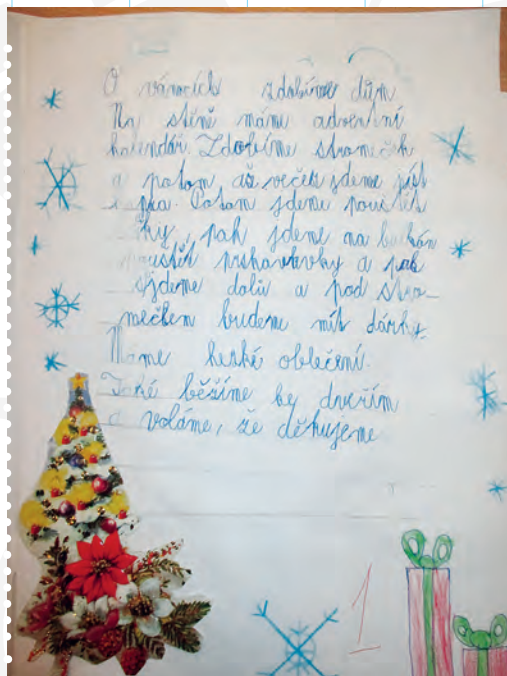 O vánocích zdobíme dům
Na stěně máme adventní
kalendář. Zdobíme stromeček
a potom až večer jdeme jíst
Potom jdeme pouštět
, pak jdeme na balkón
pouštět prskavky a pak
sjdeme dolů a pod stro-
mečkem budeme mít dárky.
Máme hezké oblečení.
Také běžíme ke dveřím
a voláme, že děkujeme
1